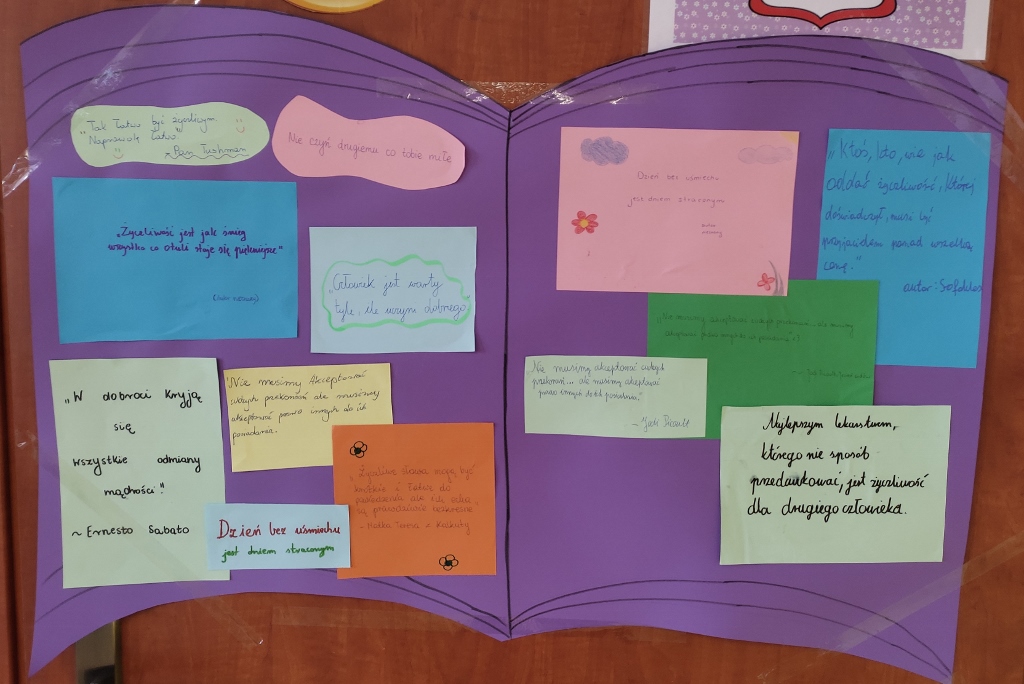 „Tak łatwo być życzliwym.
Naprawdę łatwo"
~ Pan Tushman
Nie czyń drugiemu co tobie miłe
„Życzliwość jest jak śnieg
wszystko co otuli staje się piękniejsze"
(autor nieznany)
„Człowiek jest warty
tyle, ile uczyni dobrego
„W dobroci kryją
się
wszystkie odmiany
mądrości."
~ Ernesto Sabato
"Nie musimy Akceptować
cudzych przekonań ale musimy
akceptować prawo innych do ich
posiadania.
„Życzliwe słowa mogą być
krótkie i łatwe do
powiedzenia ale ich echa
są prawdziwie
- Matka Teresa z Kalkuty
Dzień bez uśmiechu
jest dniem straconym
Dzień bez uśmiechu
jest dniem straconym
autor
nieznany
„Ktoś, kto, wie jak
oddać życzliwość, której
doświadczył, musi być
przyjacielem ponad wszelką
cenę."
autor: Sofokles
„Nie musimy akceptować cudzych przekonań... ale musimy
akceptować prawo innych do ich posiadania"
Nie musimy akceptować cudzych
przekonań... ale musimy akceptować
prawo innych do ich posiadania."
~ Jodi Picoult
Najlepszym lekarstwem,
którego nie sposób
przedawkować, jest życzliwość
dla drugiego człowieka.